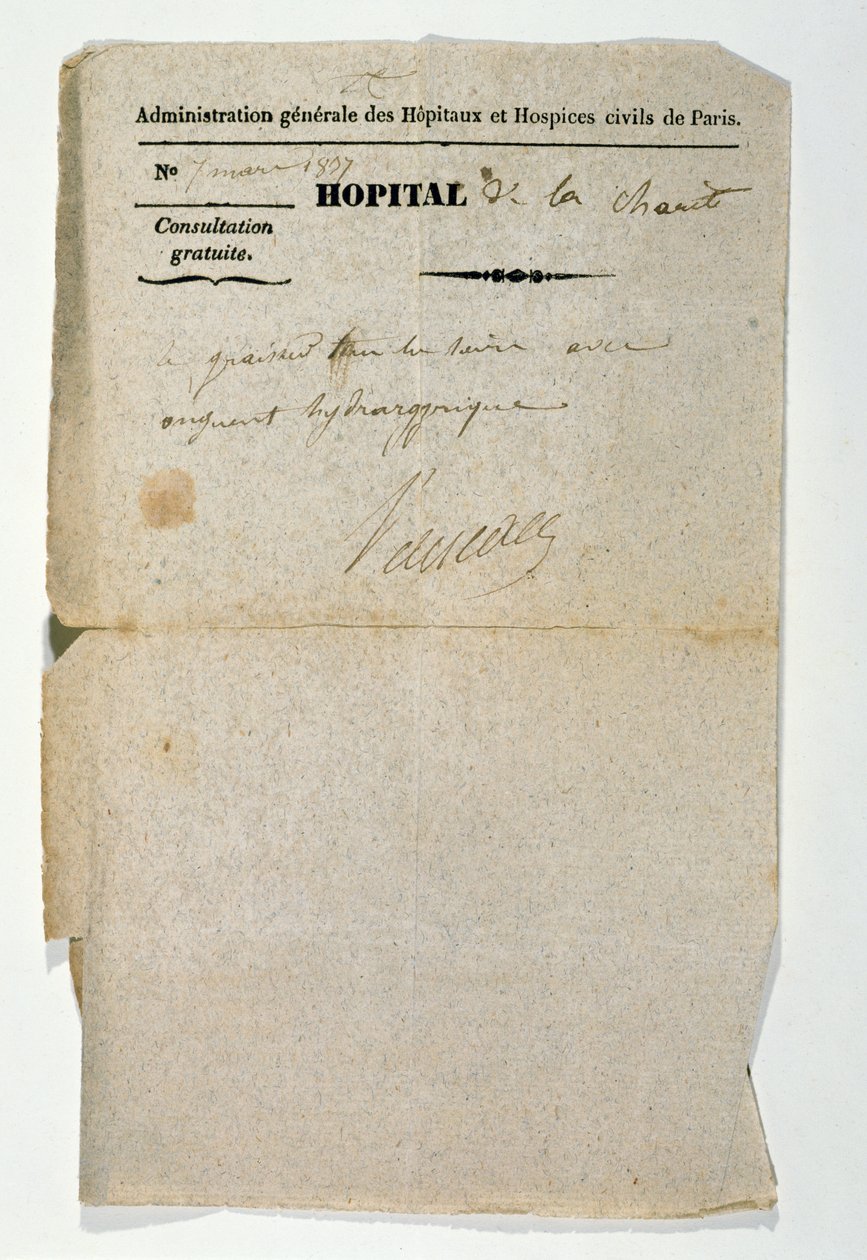 Administration générale des Hôpitaux et Hospices civils de Paris.
No 7 mars 1837
HOPITAL de la charité
Consultation
gratuite.
graisser avec
onguent hydrargyrique